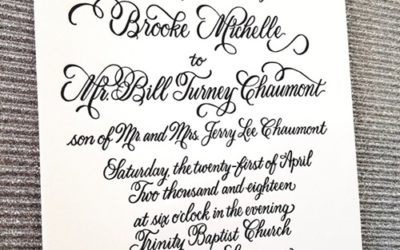 Brooke Michelle
to
Mr. Bill Turney Chaumont
son of Mr. and Mrs. Jerry Lee Chaumont
Saturday, the twenty-first of April
Two thousand and eighteen
at six o'clock in the evening
Trinity Baptist Church